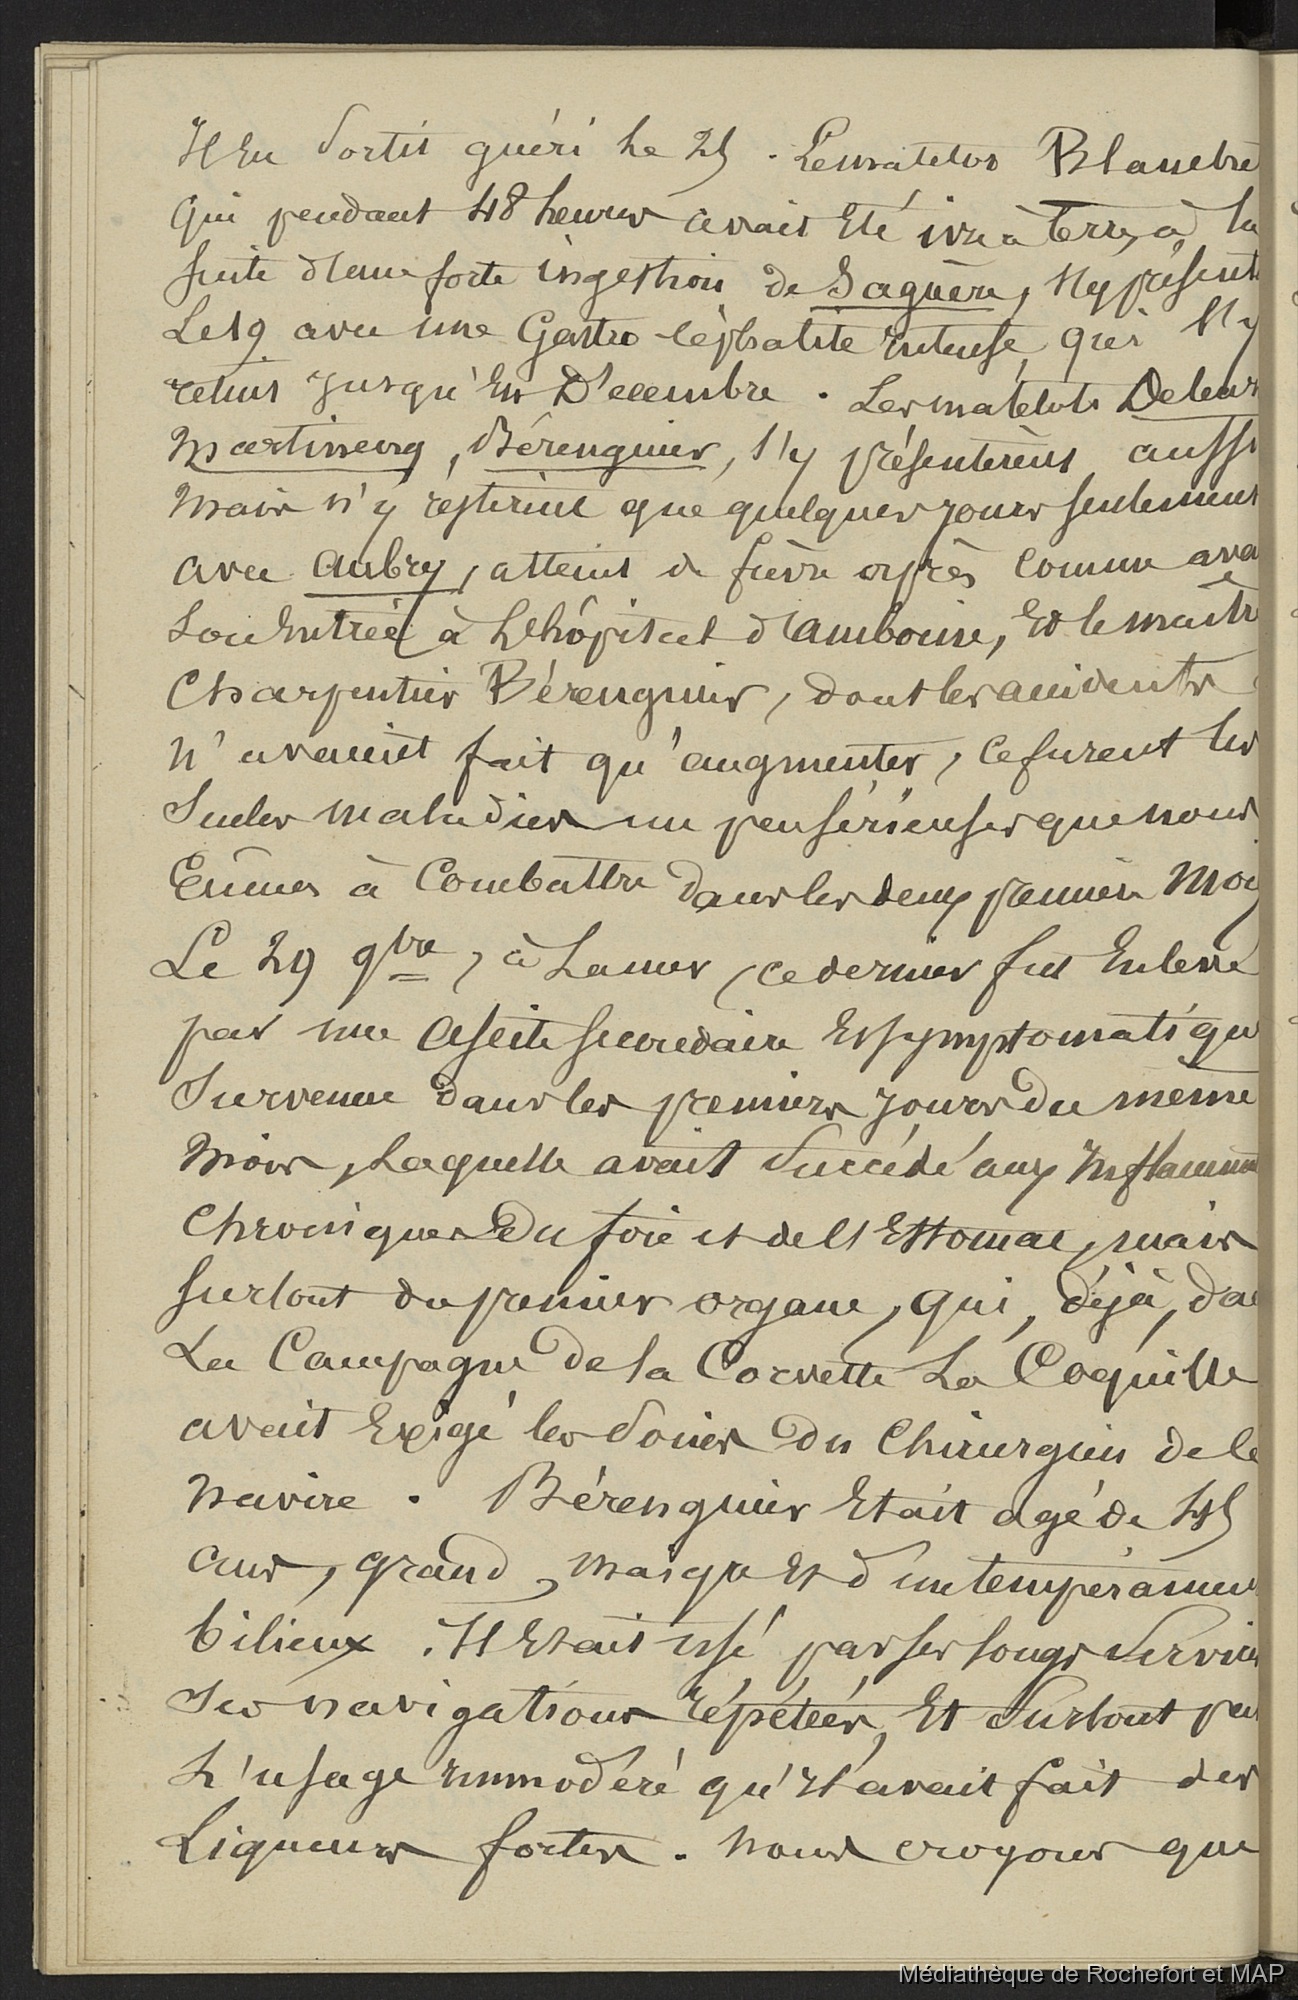 Il en sortit guéri le 25. Le matelot Blanchre
qui pendant 48 heures avait été ivre à terre, à la
suite d'une forte ingestion de Saguère, s'y présent
Le 19 avec une Gastro-céphalite intense, qui l'y
retint jusqu'en Décembre. Les matelots Deleur
Martineng, Bérenguier, s'y présentèrent aussi
mais n'y restèrent que quelques jours seulement
avec Aubry, atteint de fièvre après comme ava
son entrée à l'hôpital d'amboine, Et le maître
Charpentier Bérenguier, dont les accidents
n'avaient fait qu'augmenter, ce furent les
seules maladies un peu sérieuses que nous
Eûmes à Combattre dans les deux premiers moi
Le 29 9bre, à La mer, ce dernier fut Enlevé
par une Ascite secondaire Et symptomatique
survenue dans les premiers jours du même
mois, Laquelle avait succédé aux Inflamm
Chroniques du foie et de l'Estomac, mais
surtout du premier organe, qui, déjà, da
La Campagne de la Corvette La Coquille
avait Exigé les soins du Chirurgien de ce
navire. Bérenguier Etait agé de 45
ans, grand, maigre Et d'un tempéramen
bilieux. Il Etait usé par ses longs servic
ses navigations répétées, Et surtout pa
L'usage immodéré qu'il avait fait des
Liqueurs fortes. Nous croyons que
Médiathèque de Rochefort et MAP